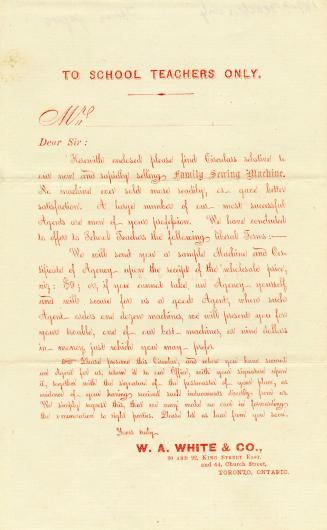 TO SCHOOL TEACHERS ONLY.
Mr
Dear Sir:
Herewith enclosed please find Circulars relative to
our new and rapidly selling Family Sewing Machine.
No machine ever sold more readily, or gave better
satisfaction. A large number of our most successful
Agents are men of your profession. We have concluded
to offer to School Teachers the following liberal Terms:—
We will send you a sample Machine and Cer-
tificate of Agency upon the receipt of the wholesale price,
viz: $9; or, if you cannot take an Agency yourself
and will secure for us a good Agent, when such
Agent orders one dozen machines, we will present you for
your trouble, one of our best machines, or nine dollars
in money, just which you may prefer.
Please preserve this Circular, and when you have secured
an Agent for us, return it to our Office, with your signature upon
it, together with the signature of the postmaster of your place, as
evidence of your having received such inducements directly from us.
We simply request this, that we may make no error in forwarding
the remuneration to right parties. Please let us hear from you soon.
Yours truly,
W. A. WHITE & CO.,
90 AND 92, KING STREET EAST,
and 64, Church Street,
TORONTO, ONTARIO.